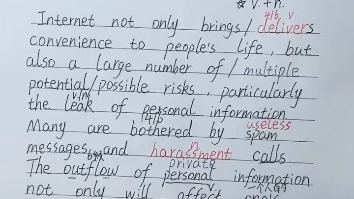 ☆ v. + n.
v.
Internet not only brings / delivers
convenience to people's life, but
also a large number of / multiple
potential / possible risks, particularly
the leak of personal information
Many are bothered by useless spam
messages and harassment calls
private
The outflow of personal information
not only will affect